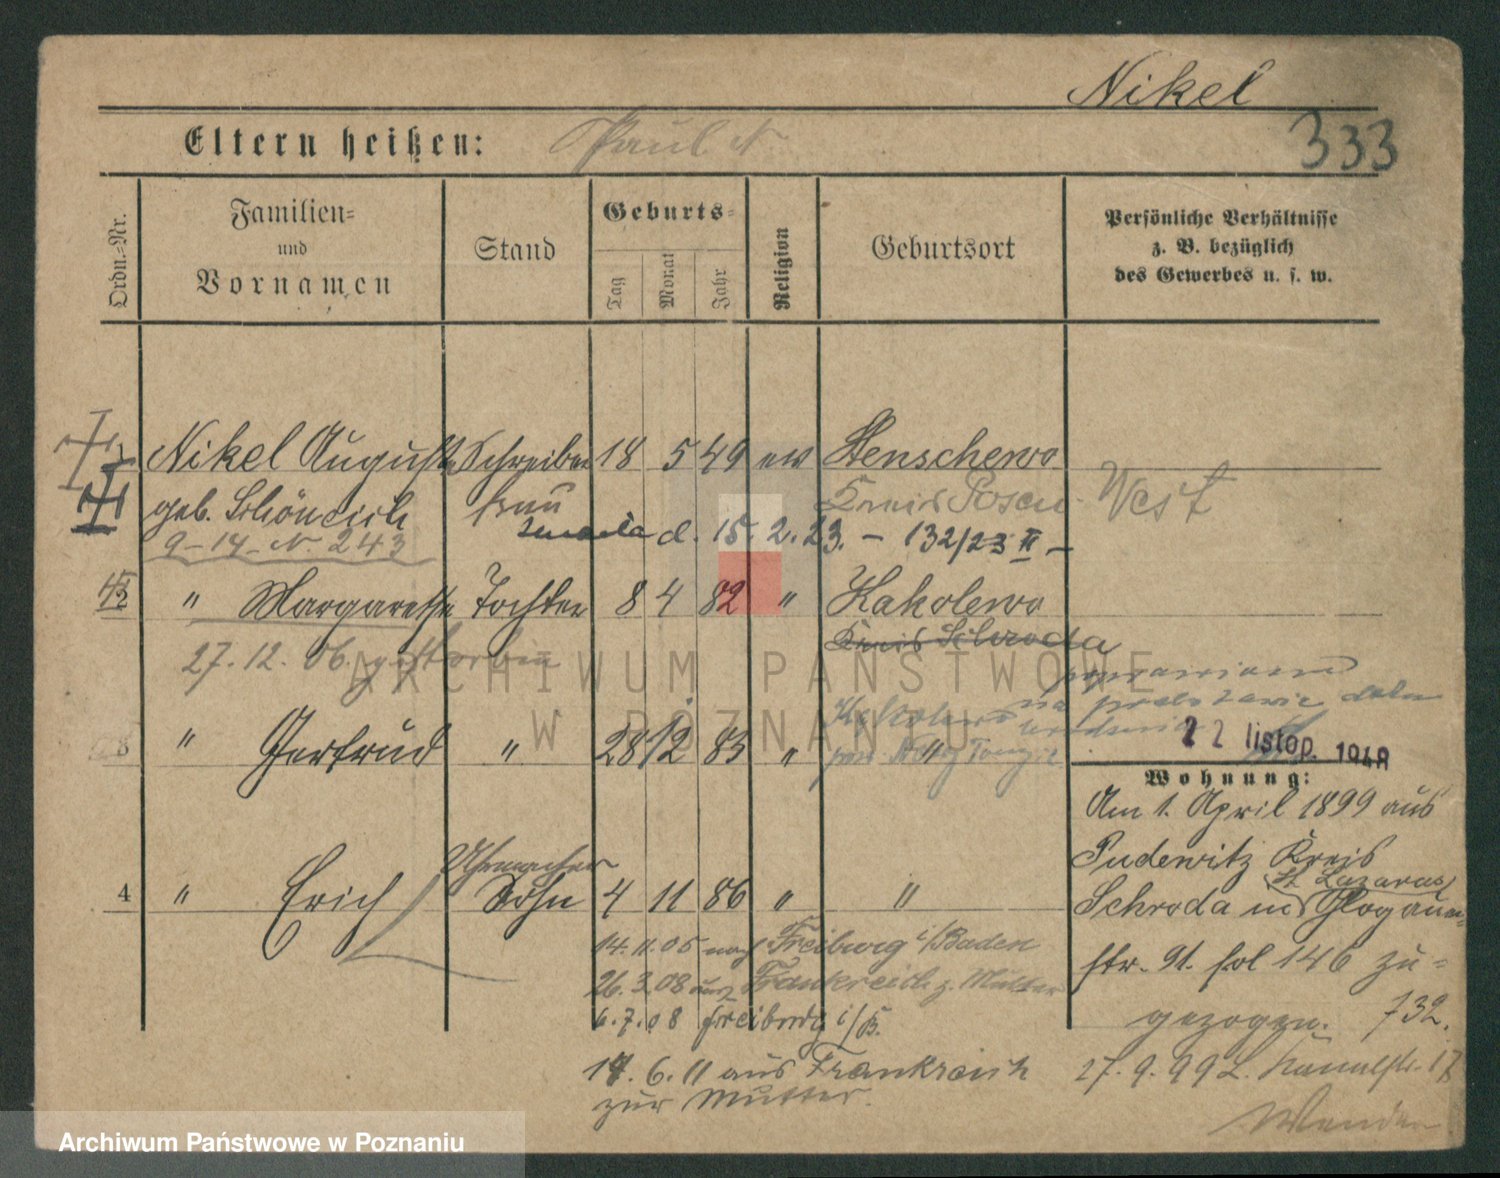 Nikel
333
Eltern heißen: Paul N
Ordn.-Nr.
Familien-
und
Vornamen
Stand
Geburts-
Tag
Monat
Jahr
Religion
Geburtsort
Persönliche Verhältnisse
z. B. bezüglich
des Gewerbes u. s. w.
1 Nikel Auguste Schreiber 18 5 49 ev
geb. frau Kreis Posen West
d. 15. 2. 23. - 132/23 II -
9-14-N. 243
2 " Margarethe Tochter 8 4 82 " Kakolewo
Kreis Schroda
27. 12. 06. gestorben
3 " Gertrud " 28 12 83 " "
22 listop. 1948
4 " Erich Uhrmacher Sohn 4 11 86 " "
14. 11. 05 nach Freiburg i/Baden
26. 3. 08 aus Frankreich z. Mutter
6. 7. 08 Freiburg i/B.
17. 6. 11 aus Frankreich
zur Mutter.
Wohnung:
Am 1. April 1899 aus
Pudewitz Kreis
St. Lazarus
Schroda Glogauer-
str. 91. fol 146 zu-
gezogen. 732.
27. 9. 99 L. 17
Wenden
ARCHIWUM PAŃSTWOWE
W POZNANIU
Archiwum Państwowe w Poznaniu